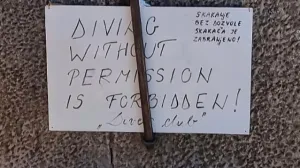 DIVING
WITHOUT
PERMISSION
IS FORBIDDEN!
„Diver club“
SKAKANJE
BEZ DOZVOLE
SKAKAČA JE
ZABRANJENO!